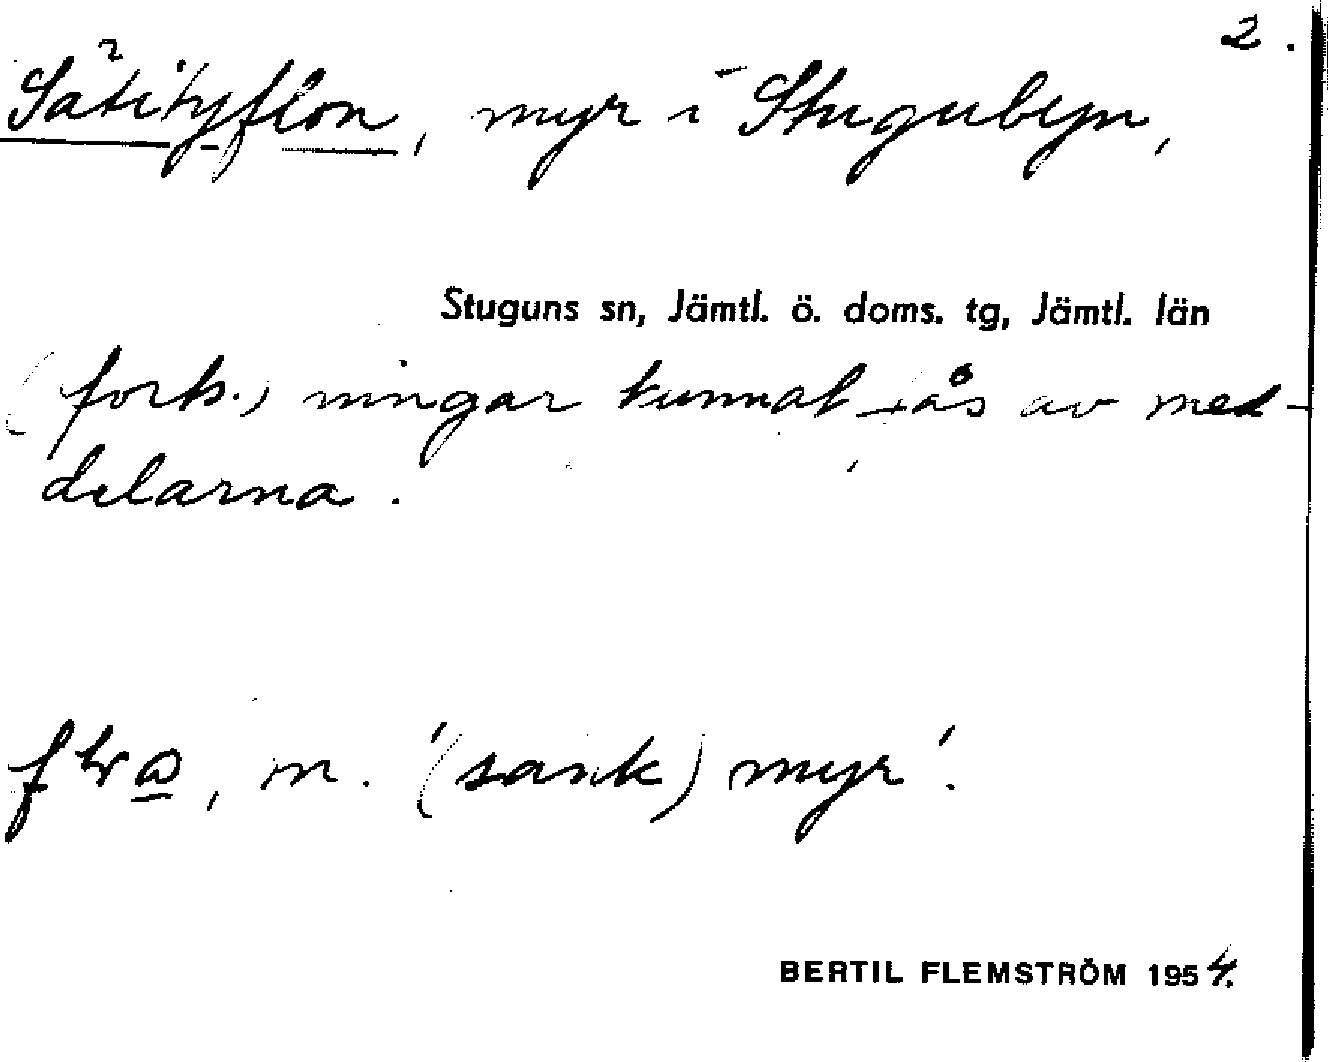 2.
Sätityflon, myr i Stugubyn,
Stuguns sn, Jämtl. ö. doms. tg, Jämtl. län
(forts.) ningar kunnat fås av med-
delarna.
m. '(sank) myr'.
BERTIL FLEMSTRÖM 1954.